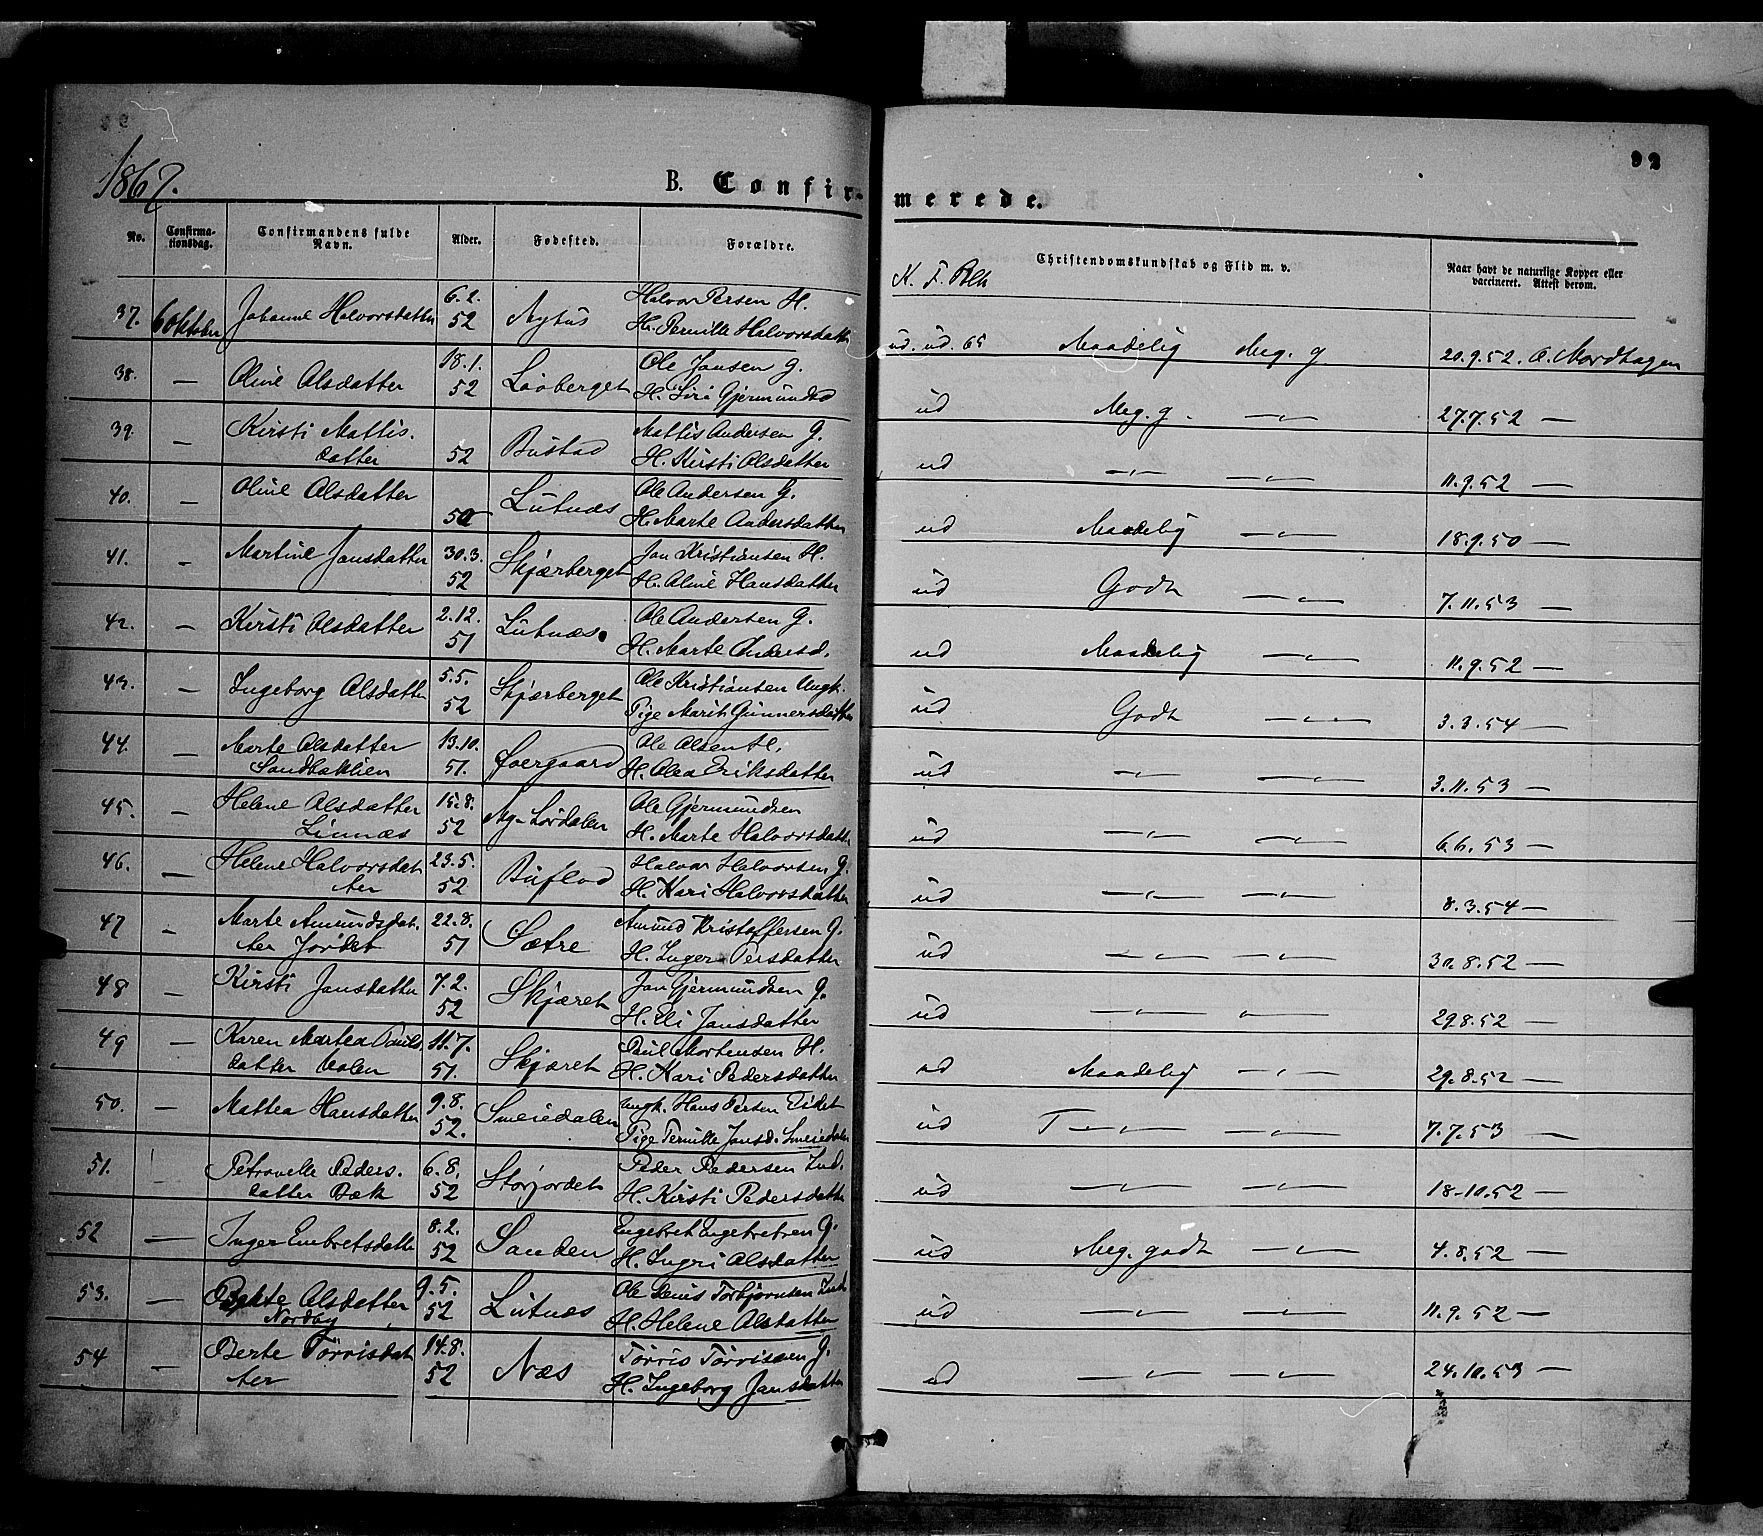 1867.
B. Confir-
merede.
92
No.
Confirma-
tionsdag.
Confirmandens fulde
Navn.
Alder.
Fødested.
Forældre.
Christendomskundskab og Flid m. v.
Naar havt de naturlige Kopper eller
vaccineret. Attest derom.
37. 6 Oktober Johanne Halvorsdatter 6.2. 52 Nyhus Halvor Persen H.
H. Pernille Halvorsdatter ud. ud. 65 Maadelig Meg. g 20.9.52. O. Mordhagen
38. — Oline Olsdatter 18.1. 52 Løvberget Ole Jansen G.
H. Siri Gjermundsd ud Meg. g. —„— 27.7.52 —
39 — Kirsti Mattis-
datter 52 Bustad Mattis Andersen G.
H. Kirsti Olsdatter ud —„— —„— 11.9.52 —
40. — Oline Olsdatter 50 Lutnæs Ole Andersen G.
H. Marte Andersdatter ud Maadelig —„— 18.9.50 —
41. — Martine Jansdatter 30.3. 52 Skjærberget Jan Kristiansen H.
H. Oline Hansdatter ud Godt —„— 7.11.53 —
42. — Kirsti Olsdatter 2.12. 51 Lutnæs Ole Andersen G.
H. Marte Andersd. ud Maadelig —„— 11.9.52 —
43. — Ingeborg Olsdatter 5.5. 52 Skjærberget Ole Kristiansen Ungk.
Pige Marit Gunnersdatter ud Godt —„— 3.3.54 —
44. — Marte Olsdatter
Sandbaklien 13.10. 51. Øvergaard Ole Olsen H.
H. Olea Eriksdatter ud —„— —„— 3.11.53 —
45. — Helene Olsdatter
Linnæs 15.8. 52 Ny-Lørdalen Ole Gjermundsen
H. Marte Halvorsdatter ud —„— —„— 6.6.53 —
46. — Helene Halvorsdat
ter 23.5. 52 Buflod Halvor Halvorsen G.
H. Kari Halvorsdatter ud —„— —„— 8.3.54 —
47 — Marte Amundsdat-
ter Jordet 22.8. 51 Sætre Amund Kristoffersen G.
H. Inger Persdatter ud —„— —„— 30.8.52 —
48 — Kirsti Jansdatter 7.2. 52 Skjæret Jan Gjermundsen G.
H. Eli Jansdatter ud —„— —„— 29.8.52 —
49 — Karen Martea Pauls
datter Volen 11.7. 51. Skjæret Paul Mortensen H.
H. Kari Pedersdatter ud Maadelig —„— 29.8.52 —
50. — Mattea Hansdatter 9.8. 52. Smeiedalen Ungk. Hans Persen Eidet
Pige Pernille Jansd. Smeiedalen ud T —„— —„— 7.7.53 —
51. Petronelle Peders-
datter Bæk 6.8. 52 Storjordet Peder Pedersen Ind.
H. Kirsti Pedersdatter ud —„— —„— 18.10.52 —
52 — Inger Embretsdatter 8.2. 52 Sanden Engebret Engebretsen G.
H. Ingri Olsdatter ud Meg. godt —„— 4.8.52 —
53. — Olsdatter
Nordby 9.5. 52 Lutnæs Ole Torbjørnsen Ind.
H. Helene Olsdatter ud —„— —„— 11.9.52 —
54 — Berte Tørrisdat
ter 14.8. 52 Næs Tørris Tørrissen G.
H. Ingeborg Jansdatter ud —„— —„— 24.10.53 —